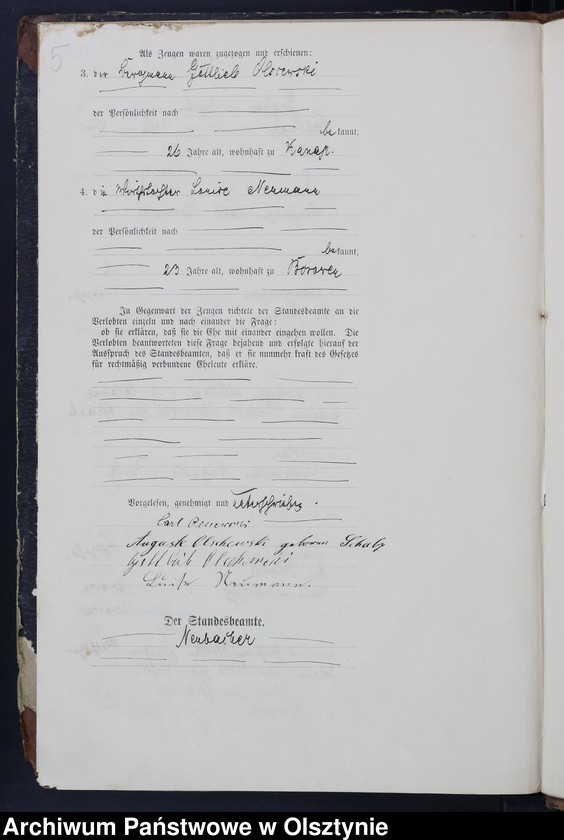 5
Als Zeugen waren zugezogen und erschienen:
3. der Bergmann Gottlieb Olszewski
der Persönlichkeit nach
bekannt,
26 Jahre alt, wohnhaft zu
4. die Louise Neumann
der Persönlichkeit nach
bekannt,
23 Jahre alt, wohnhaft zu Borowen
In Gegenwart der Zeugen richtete der Standesbeamte an die
Verlobten einzeln und nach einander die Frage:
ob sie erklären, daß sie die Ehe mit einander eingehen wollen. Die
Verlobten beantworteten diese Frage bejahend und erfolgte hierauf der
Ausspruch des Standesbeamten, daß er sie nunmehr kraft des Gesetzes
für rechtmäßig verbundene Eheleute erkläre.
Vorgelesen, genehmigt und unterschrieben.
Carl
Auguste Olschewski geboren
Gottlieb Olschewski
Luise Neumann.
Der Standesbeamte.
Neubacher
Archiwum Państwowe w Olsztynie